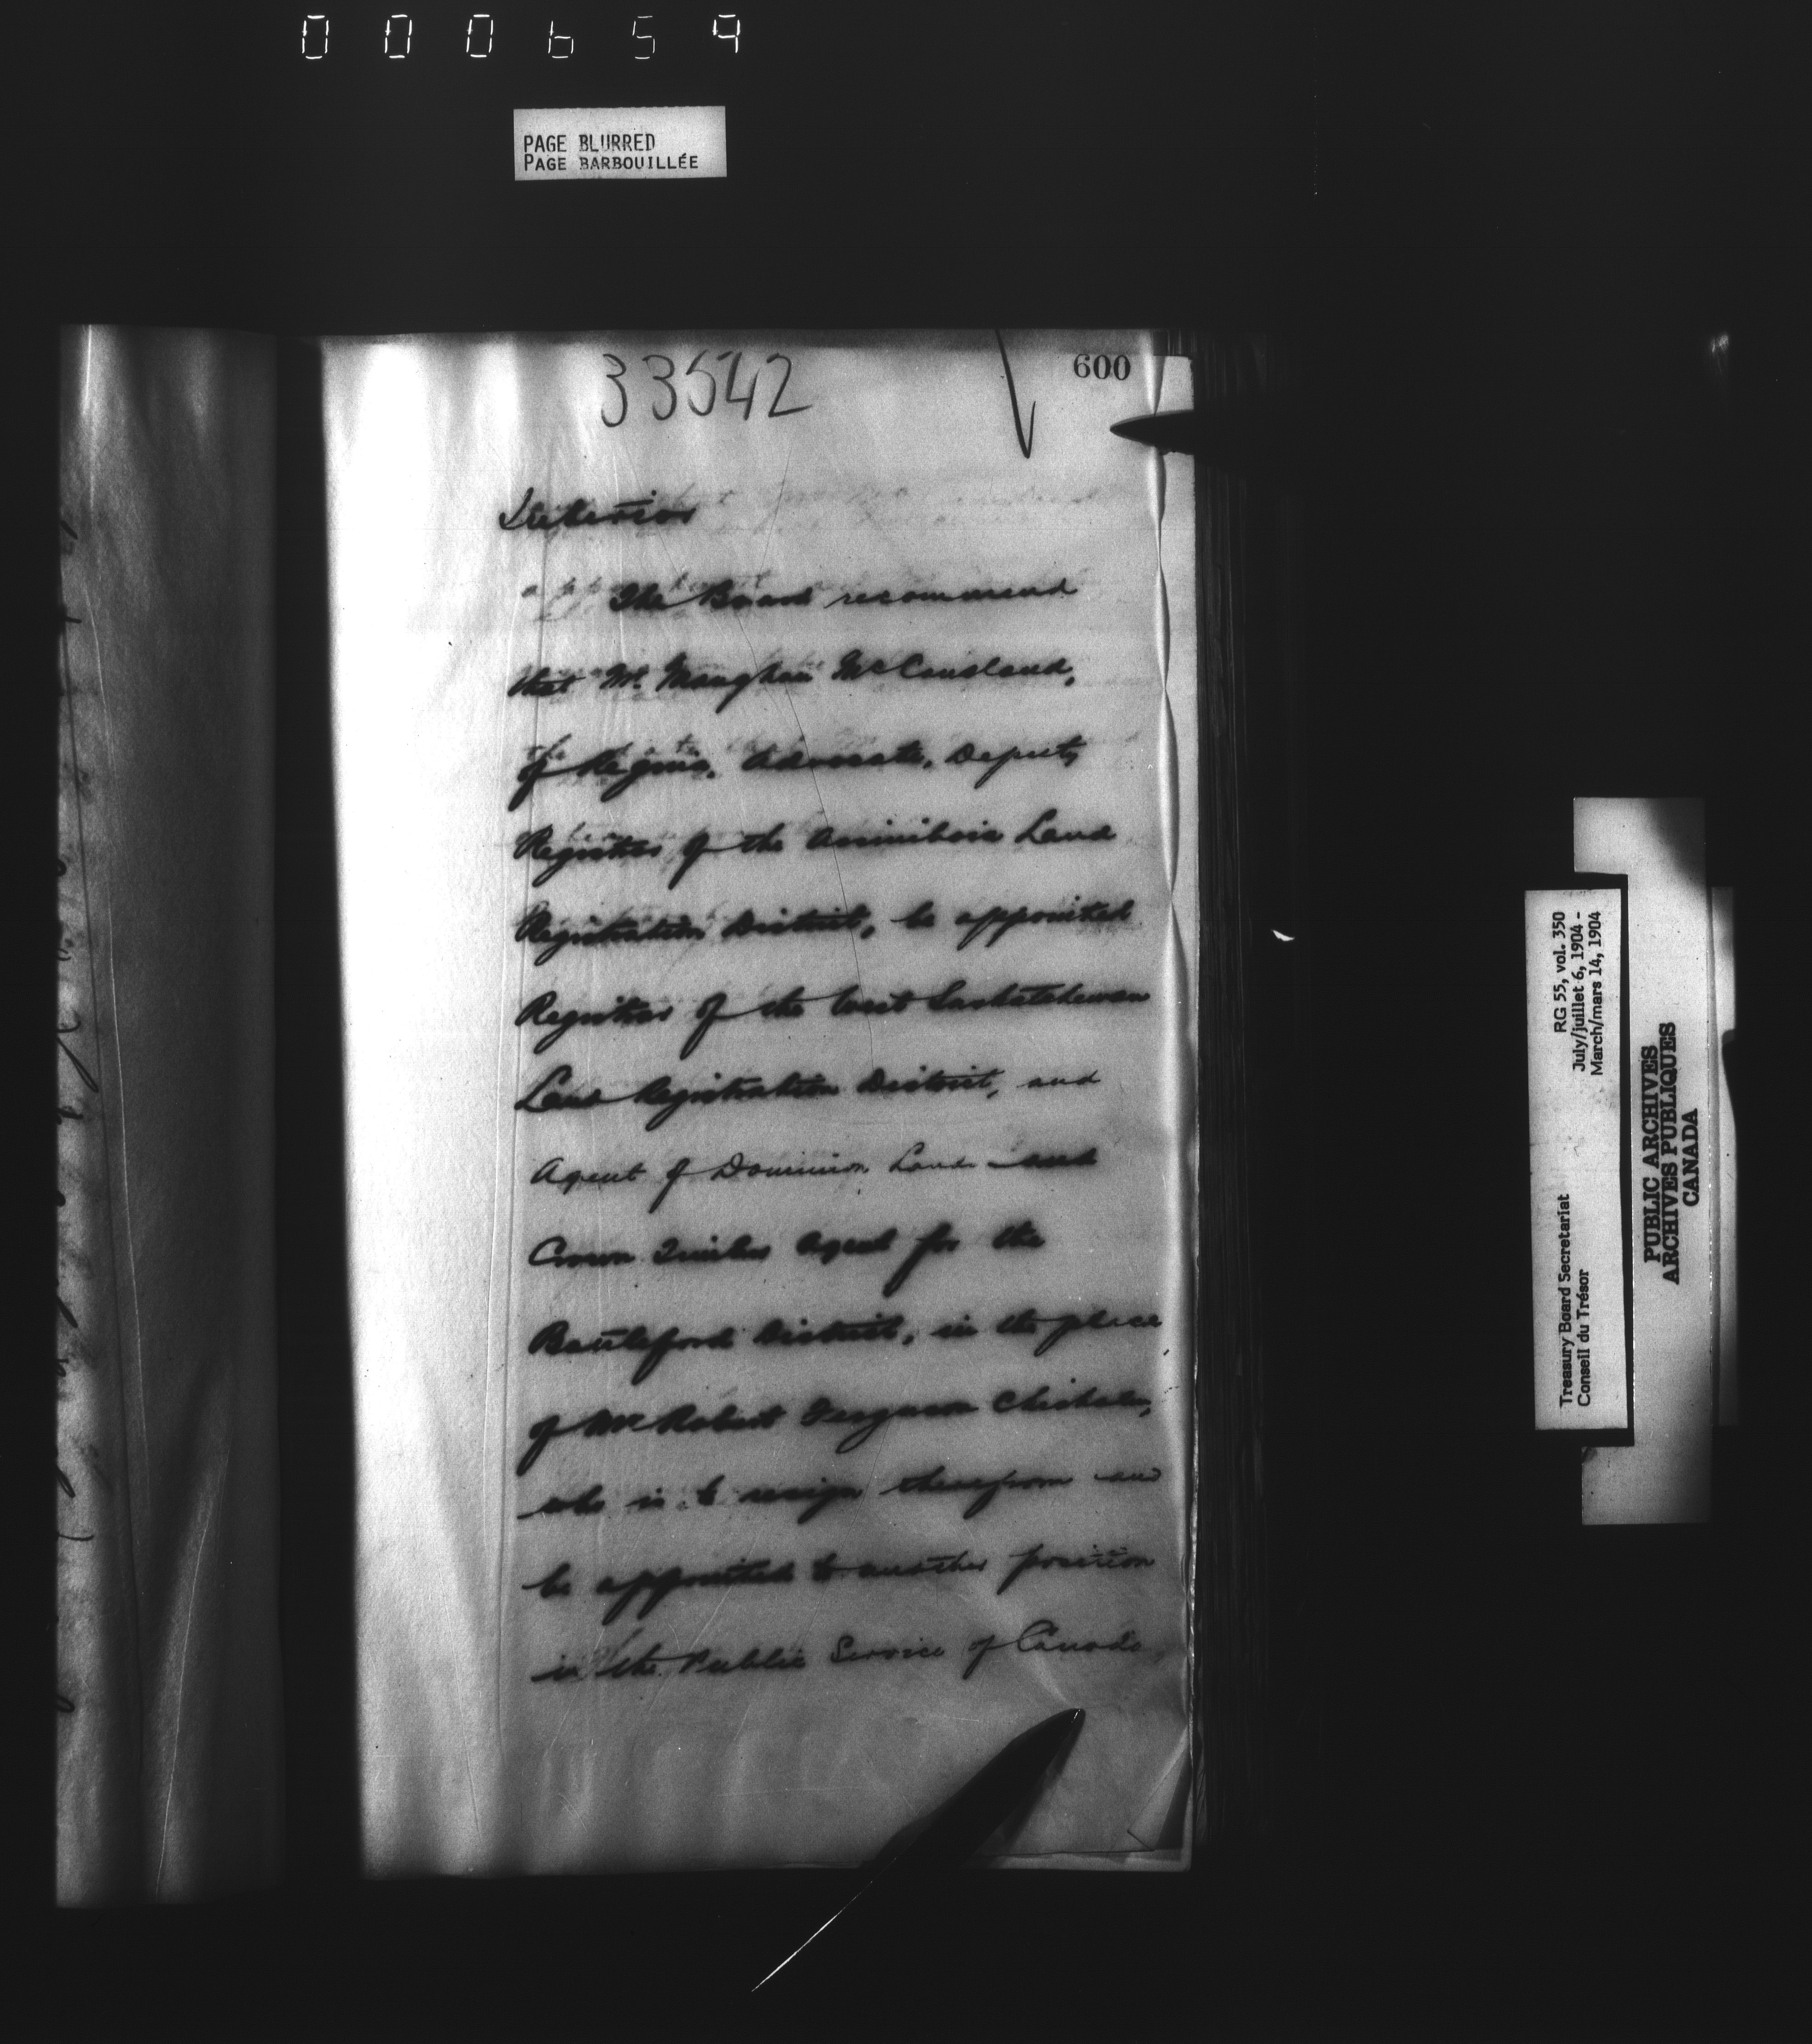 000659
PAGE BLURRED
PAGE BARBOUILLÉE
33542
600
Interior
The Board recommend
that Mr. Maughan McCausland,
of Regina, Advocate, Deputy
Registrar of the Assiniboia Land
Registration District, be appointed
Registrar of the West Saskatchewan
Land Registration District, and
Agent of Dominion Lands and
Crown Timber Agent for the
Battleford District, in the place
of Mr Robert Ferguson Chisholm,
who is to resign therefrom and
be appointed to another position
in the Public Service of Canada
Treasury Board Secretariat RG 55, vol. 350
Conseil du Trésor July/juillet 6, 1904 -
March/mars 14, 1904
PUBLIC ARCHIVES
ARCHIVES PUBLIQUES
CANADA